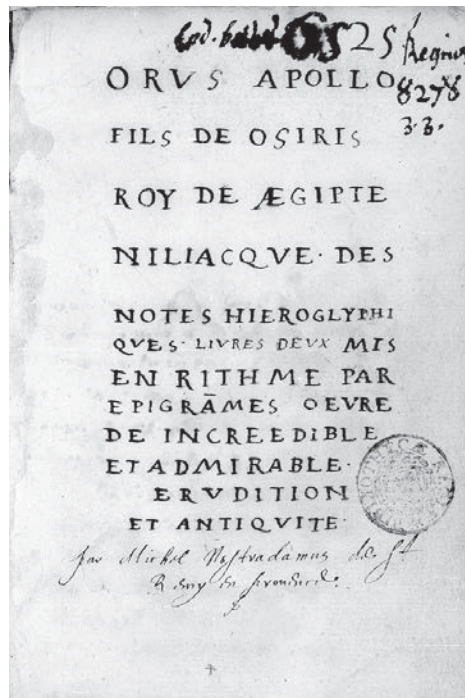 Cod. 6525 Regius
ORVS APOLLO
8278
3.3.
FILS DE OSIRIS
ROY DE ÆGIPTE
NILIACQVE· DES
NOTES HIEROGLYPHI
QVES· LIVRES DEVX MIS
EN RITHME PAR
EPIGRĀMES OEVRE
DE INCREEDIBLE
ET ADMIRABLE·
ERVDITION
ET ANTIQVITE·
par Michel Nostradamus de St
Remy en